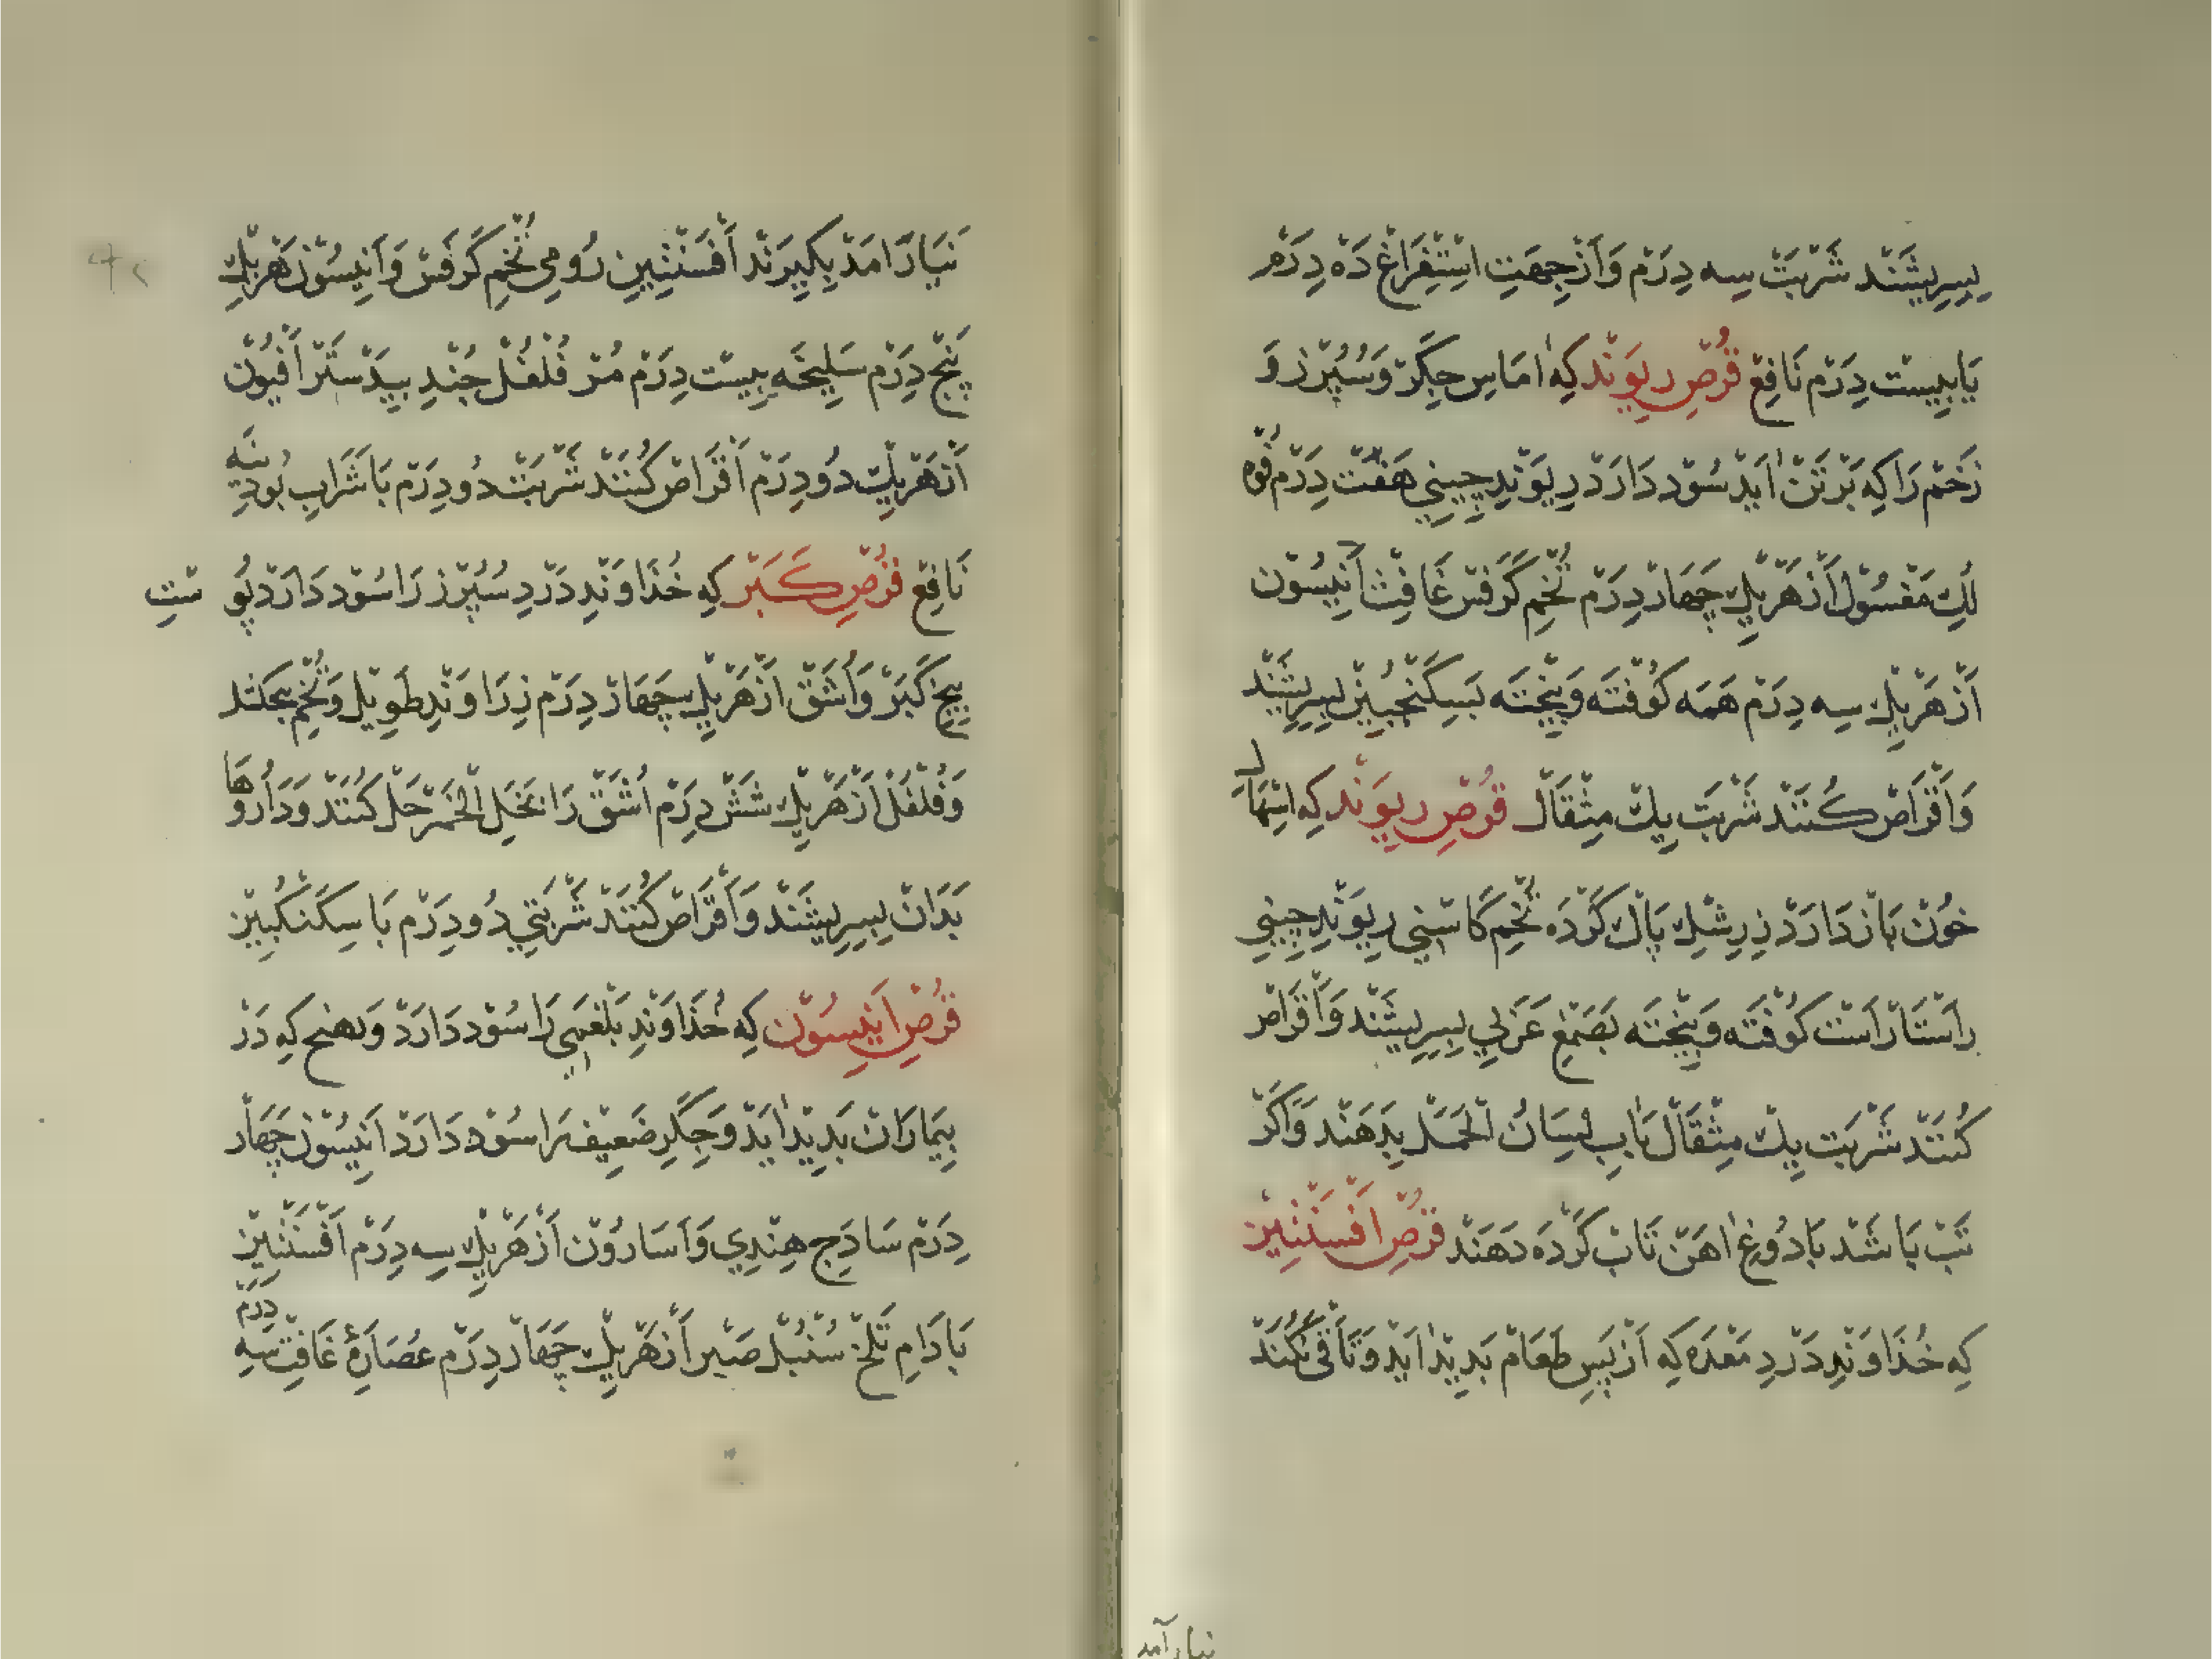 بِسِرِیشَنْد شَرْبَتْ سِه دِرَمْ وَاَزْجِهَتِ اسْتِفْرَاغْ دَه دِرَمْ
یَابِیسْت دِرَمْ نَافِعْ قُرْصِ رِیوَنْد کِه اٰمَاسِ جِگَرْ وَسُپُرْز وَ
زَخْمْ رَا کِه بَرْ تَنْ اٰیَدْ سُوْد دَارَدْ رِیوَنْدِ چِینِي هَفْتْ دِرَمْ فُوه
لُكِّ مَغْسُوْل اَزْ هَرْیِكْ چَهَارْ دِرَمْ تُخْمِ کَرَفْس غَافِثْ اَنِیسُوْن
اَزْ هَرْیِكْ سِه دِرَمْ هَمَه کُوْفْتَه وَبِیخْتَه بَسِکَنْجُبِیْن بِسِرِیشَنْد
وَاَقْرَاصْ کُنَنْد شَرْبَتْ یِكْ مِثْقَالْ قُرْصِ رِیوَنْد کِه اسْهَالِ
خُوْن بَازْ دَارَدْ زِرِشْكِ پَاكْ کَرْدَه تُخْمِ کَاسْنِي رِیوَنْدِ چِینِي
رَاسْتَارَاسْت کُوْفْتَه وَبِیخْتَه بَصَمْغِ عَرَبِي بِسِرِیشَنْد وَاَقْرَاصْ
کُنَنْد شَرْبَت یِكْ مِثْقَالْ بَاٰبِ لِسَانُ الْحَمَلْ بِدَهَنْد وَاَکَرْ
تَبْ بَاشَدْ بَادُوْغِ اٰهَنْ تَابْ کَرْدَه دَهَنْد قُرْصِ اَفْسَنْتِیْن
کِه خُدَاوَنْدِ دَرْدِ مَعْدَه کِه اَزْپَسِ طَعَامْ بَدِیْد اٰیَدْ وَتَا قَیْ نَکُنَدْ
نیارآمد
نَیَارَامَدْ بِکِیرَنْد اَفْسَنْتِیْنِ رُومِي تُخْمِ کَرَفْس وَاَنِیسُوْن هَرْیِكْ
پَنْج دِرَمْ سَلِیخَه بِیسْت دِرَمْ مُرْ فُلْفُلْ جُنْدِ بِیدَسْتَرْ اَفْیُوْن
اَزْهَرْیِكْ دُو دِرَمْ اَقْرَاصْ کُنَنْد شَرْبَتْ دُو دِرَمْ بَا شَرَابِ پُودِینَه
نَافِعْ قُرْصِ کَبَرْ کِه خُدَاوَنْدِ دَرْدِ سُپُرْز رَا سُوْد دَارَدْ پُوسْتِ
بِیخِ کَبَرْ وَاُشَقْ اَزْهَرْیِكْ چَهَارْ دِرَمْ زِرَاوَنْدِ طَوِیْل وَتُخْمِ بنجکشْد
وَفُلْفُلْ اَزْهَرْیِكْ شَشْ دِرَمْ اُشَقْ رَا بَخَلِ الْخَمْرِ حَلْ کُنَنْد وَدَارُوهَا
بَدَانْ بِسِرِیشَنْد وَاَقْرَاصْ کُنَنْد شَرْبَتِي دُو دِرَمْ بَا سِکَنْکُبِیْن
قُرْصِ اَنِیسُوْن کِه خُدَاوَنْدِ بَلْغَمِي رَا سُوْد دَارَدْ وَبهنج کِه دَرْ
بِیمَارَانْ بَدِیْد اٰیَدْ وَجِگَرِ ضَعِیْف رَا سُوْد دَارَدْ اَنِیسُوْن چَهَارْ
دِرَمْ سَاذَجِ هِنْدِي وَاَسَارُوْن اَزْهَرْیِكْ سِه دِرَمْ اَفْسَنْتِیْن
بَادَامِ تَلْخ سُنْبُلْ صَبْر اَزْهَرْیِكْ چَهَارْ دِرَمْ عُصَارَهٔ غَافِثْ سِه دِرَمْ